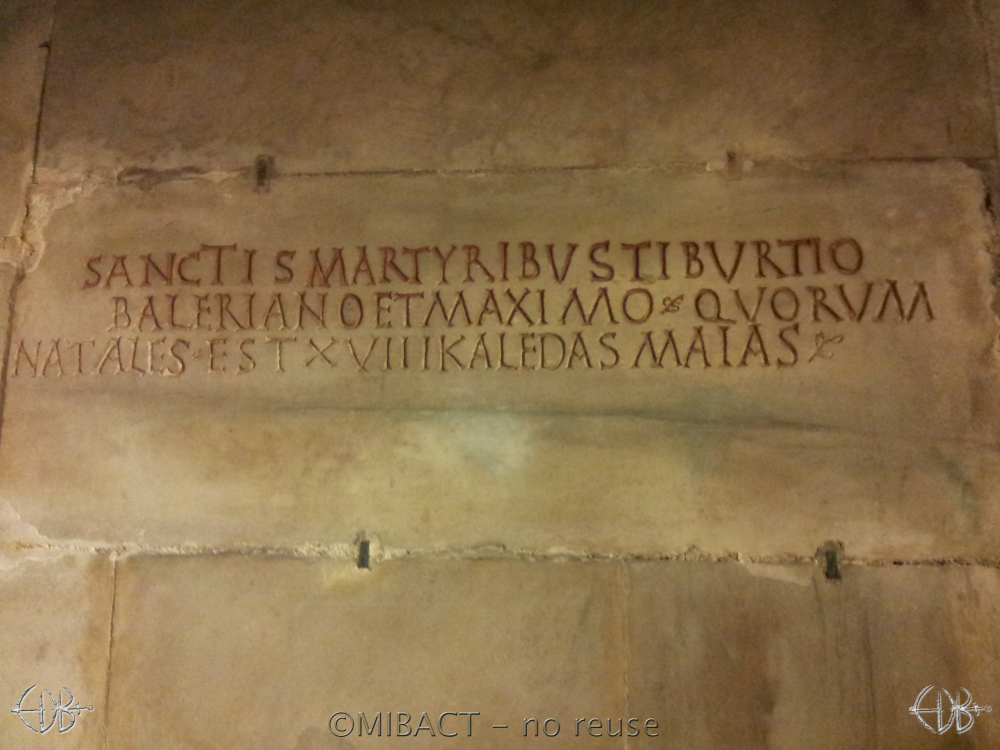 SANCTIS MARTYRIBUS TIBVRTIO
BALERIANO ET MAXIMO ❧ QVORVM
NATALES · EST XVIIII KALEDAS MAIAS ❧
©MIBACT – no reuse
EDB
EDB